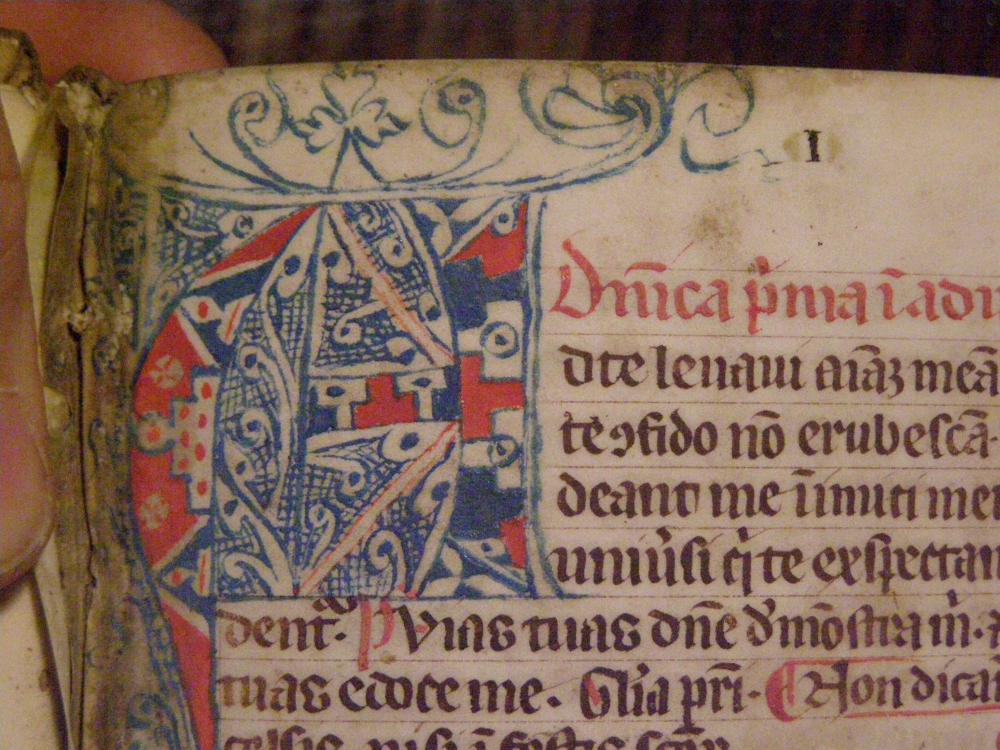 I
Dn̄ica p̄ma ī adu
A dte leuaui aīaz meā
te ↄfido nō erubescā·
deant me īimici mei
uniũsi q̇ te exspectan
dent̄. P Vias tuas dn̄e d̓mōstra m̓·
tuas edoce me. Gl̄ia pr̄i· Non dica